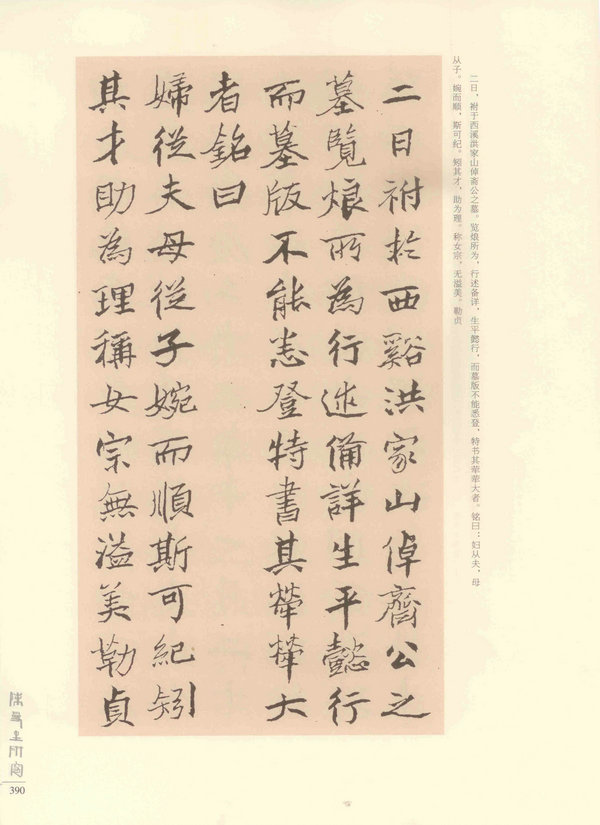 二日，祔于西溪洪家山倬斋公之墓。览烺所为，行述备详，生平懿行，而墓版不能悉登，特书其荦荦大者。铭曰：妇从夫，母
从子。婉而顺，斯可纪。矧其才，助为理。称女宗，无溢美。勒贞
二日祔於西谿洪家山倬齋公之
墓覽烺所為行述備詳生平懿行
而墓版不能悉登特書其犖犖大
者銘曰
婦從夫母從子婉而順斯可紀矧
其才助為理稱女宗無溢美勒貞
390